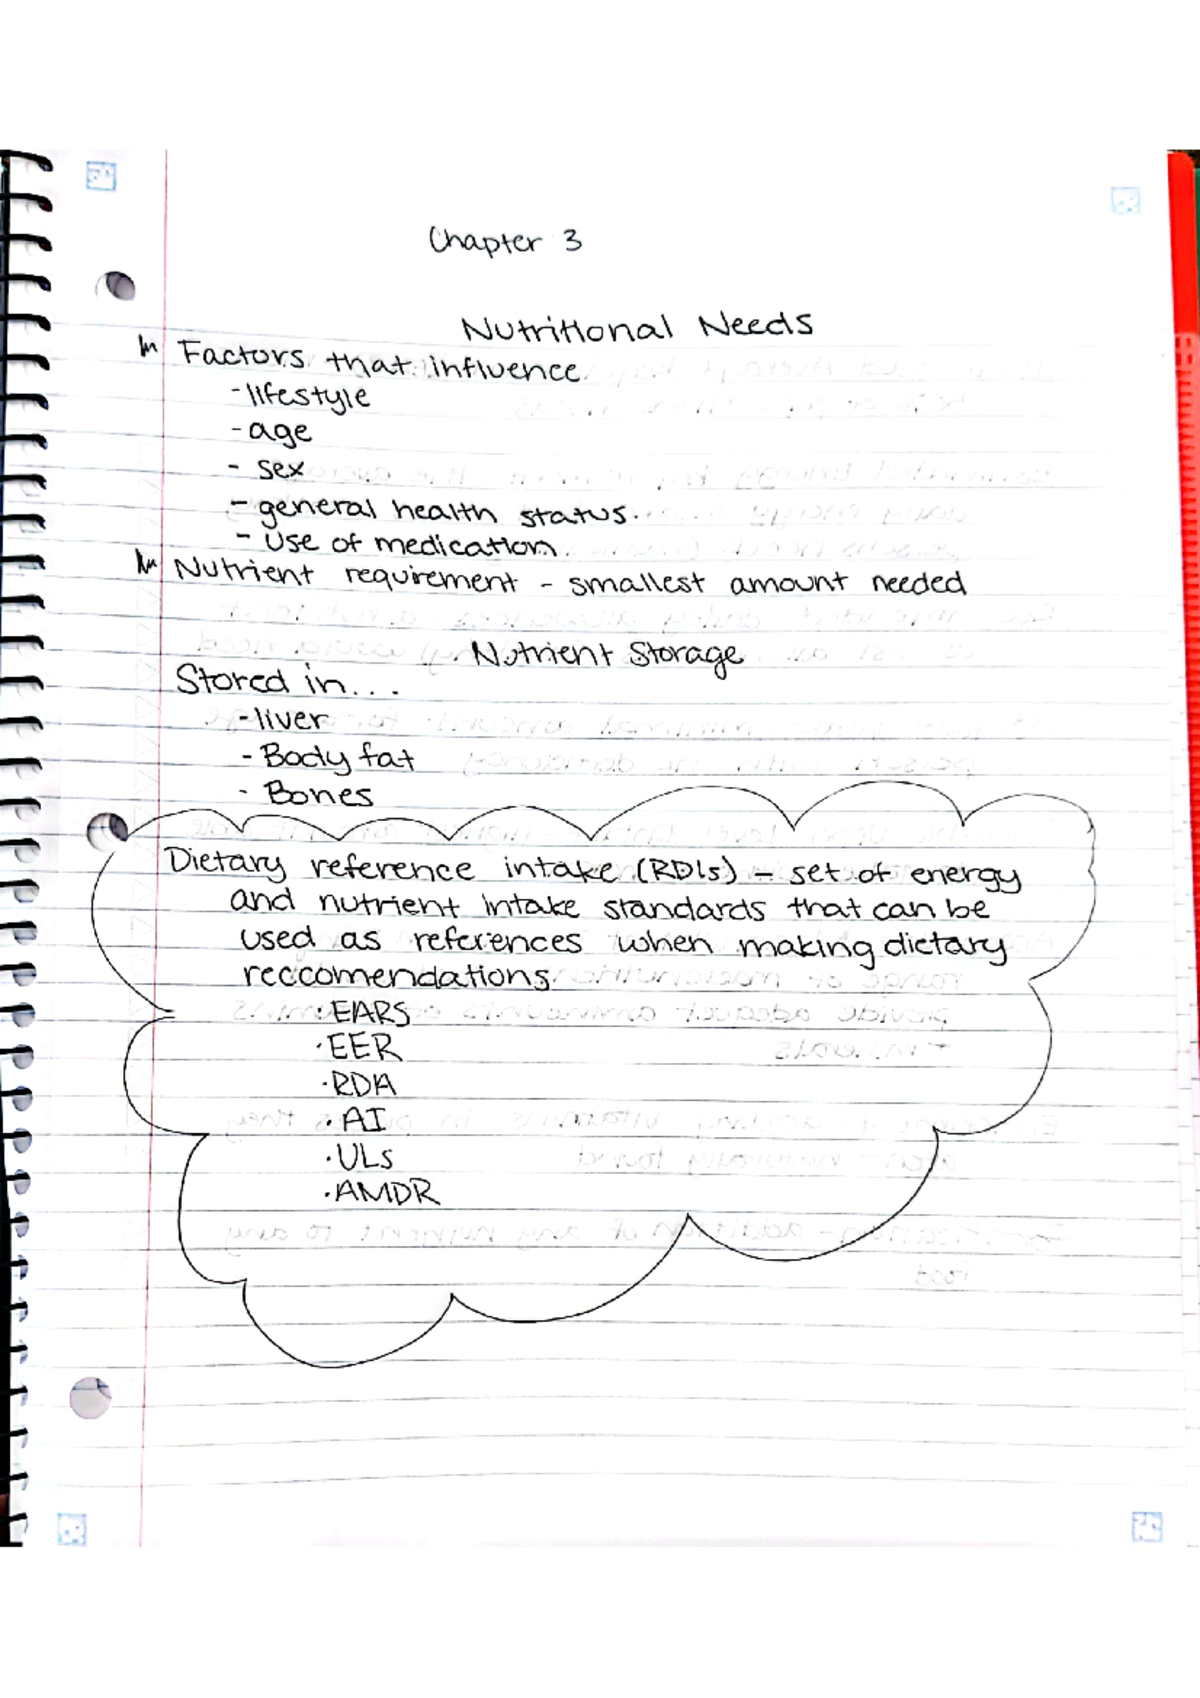 Chapter 3
Nutritional Needs
Factors that influence
- lifestyle
- age
- sex
- general health status.
- Use of medication
Nutrient requirement - smallest amount needed
Nutrient Storage
Stored in...
- liver
- Body fat
- Bones
Dietary reference intake (RDIs) - set of energy
and nutrient intake standards that can be
used as references when making dietary
reccomendations.
· EARS
· EER
· RDA
· AI
· ULs
· AMDR